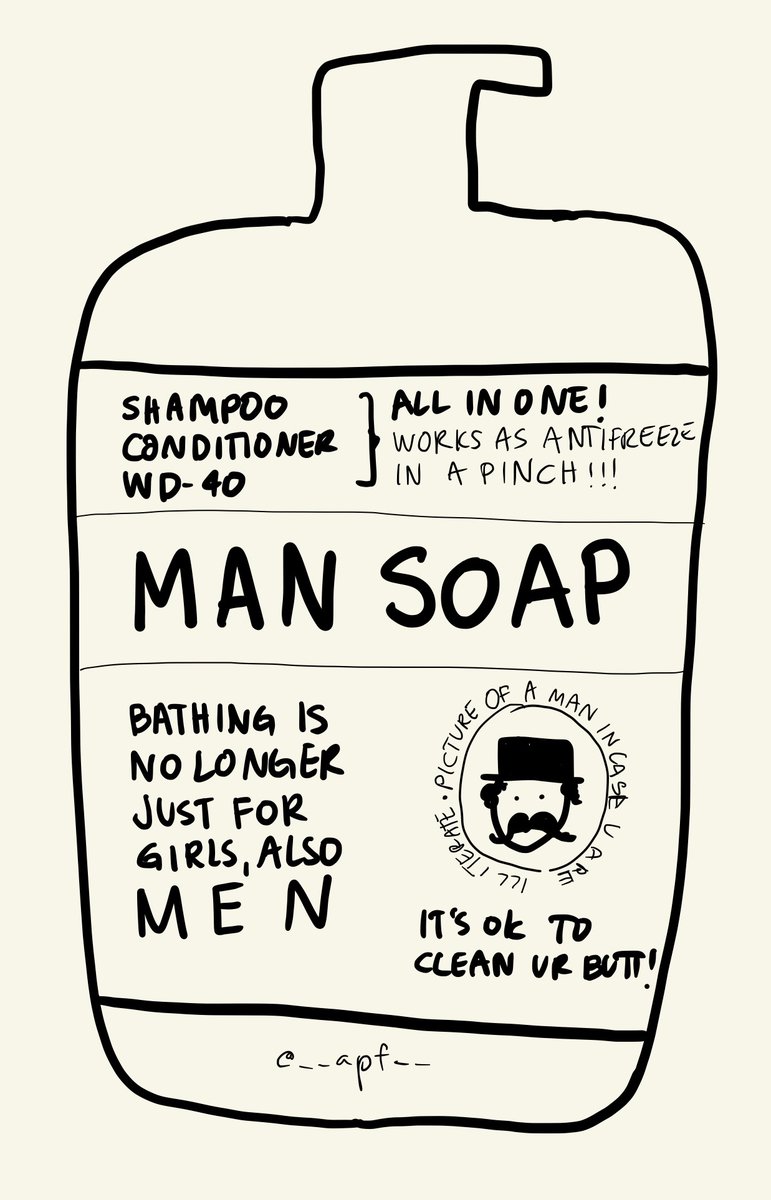 SHAMPOO
CONDITIONER
WD-40
ALL IN ONE!
WORKS AS ANTIFREEZE
IN A PINCH!!!
MAN SOAP
BATHING IS
NO LONGER
JUST FOR
GIRLS, ALSO
MEN
PICTURE OF A MAN IN CASE U ARE ILLITERATE •
IT'S OK TO
CLEAN UR BUTT!
@__apf__